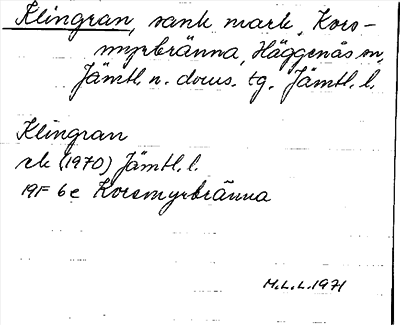 Klingran, sank mark, Kors-
myrbränna, Häggenås sn,
Jämtl. n. doms. tg. Jämtl. l.
Klingran
rk (1970) Jämtl. l.
19F 6e Korsmyrbränna
M.L.L. 1971